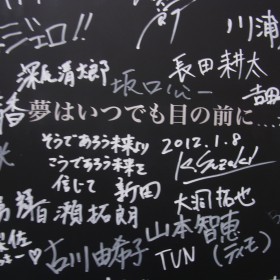 ジェロ!!
川浦
深尾清太郎
坂口心一
長田耕太
香
夢はいつでも目の前に……
そうであろう未来より
こうであろう未来を
信じて 新田
2012.1.8
K.Suzuki
百瀬拓朗
大洞拓也
古川由希子
山本智恵
TUN